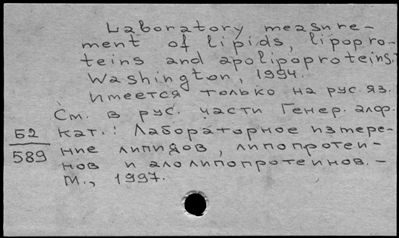 Laboratory measure-
ment of lipids, lipopro-
teins and apolipoproteins.
Washington, 1994.
Имеется только на рус. яз.
См. в рус. части Генер. алф.
Б2 кат.: Лабораторное измере-
589 ние липидов, липопротеи-
нов и аполипопротеинов. -
М., 1997.